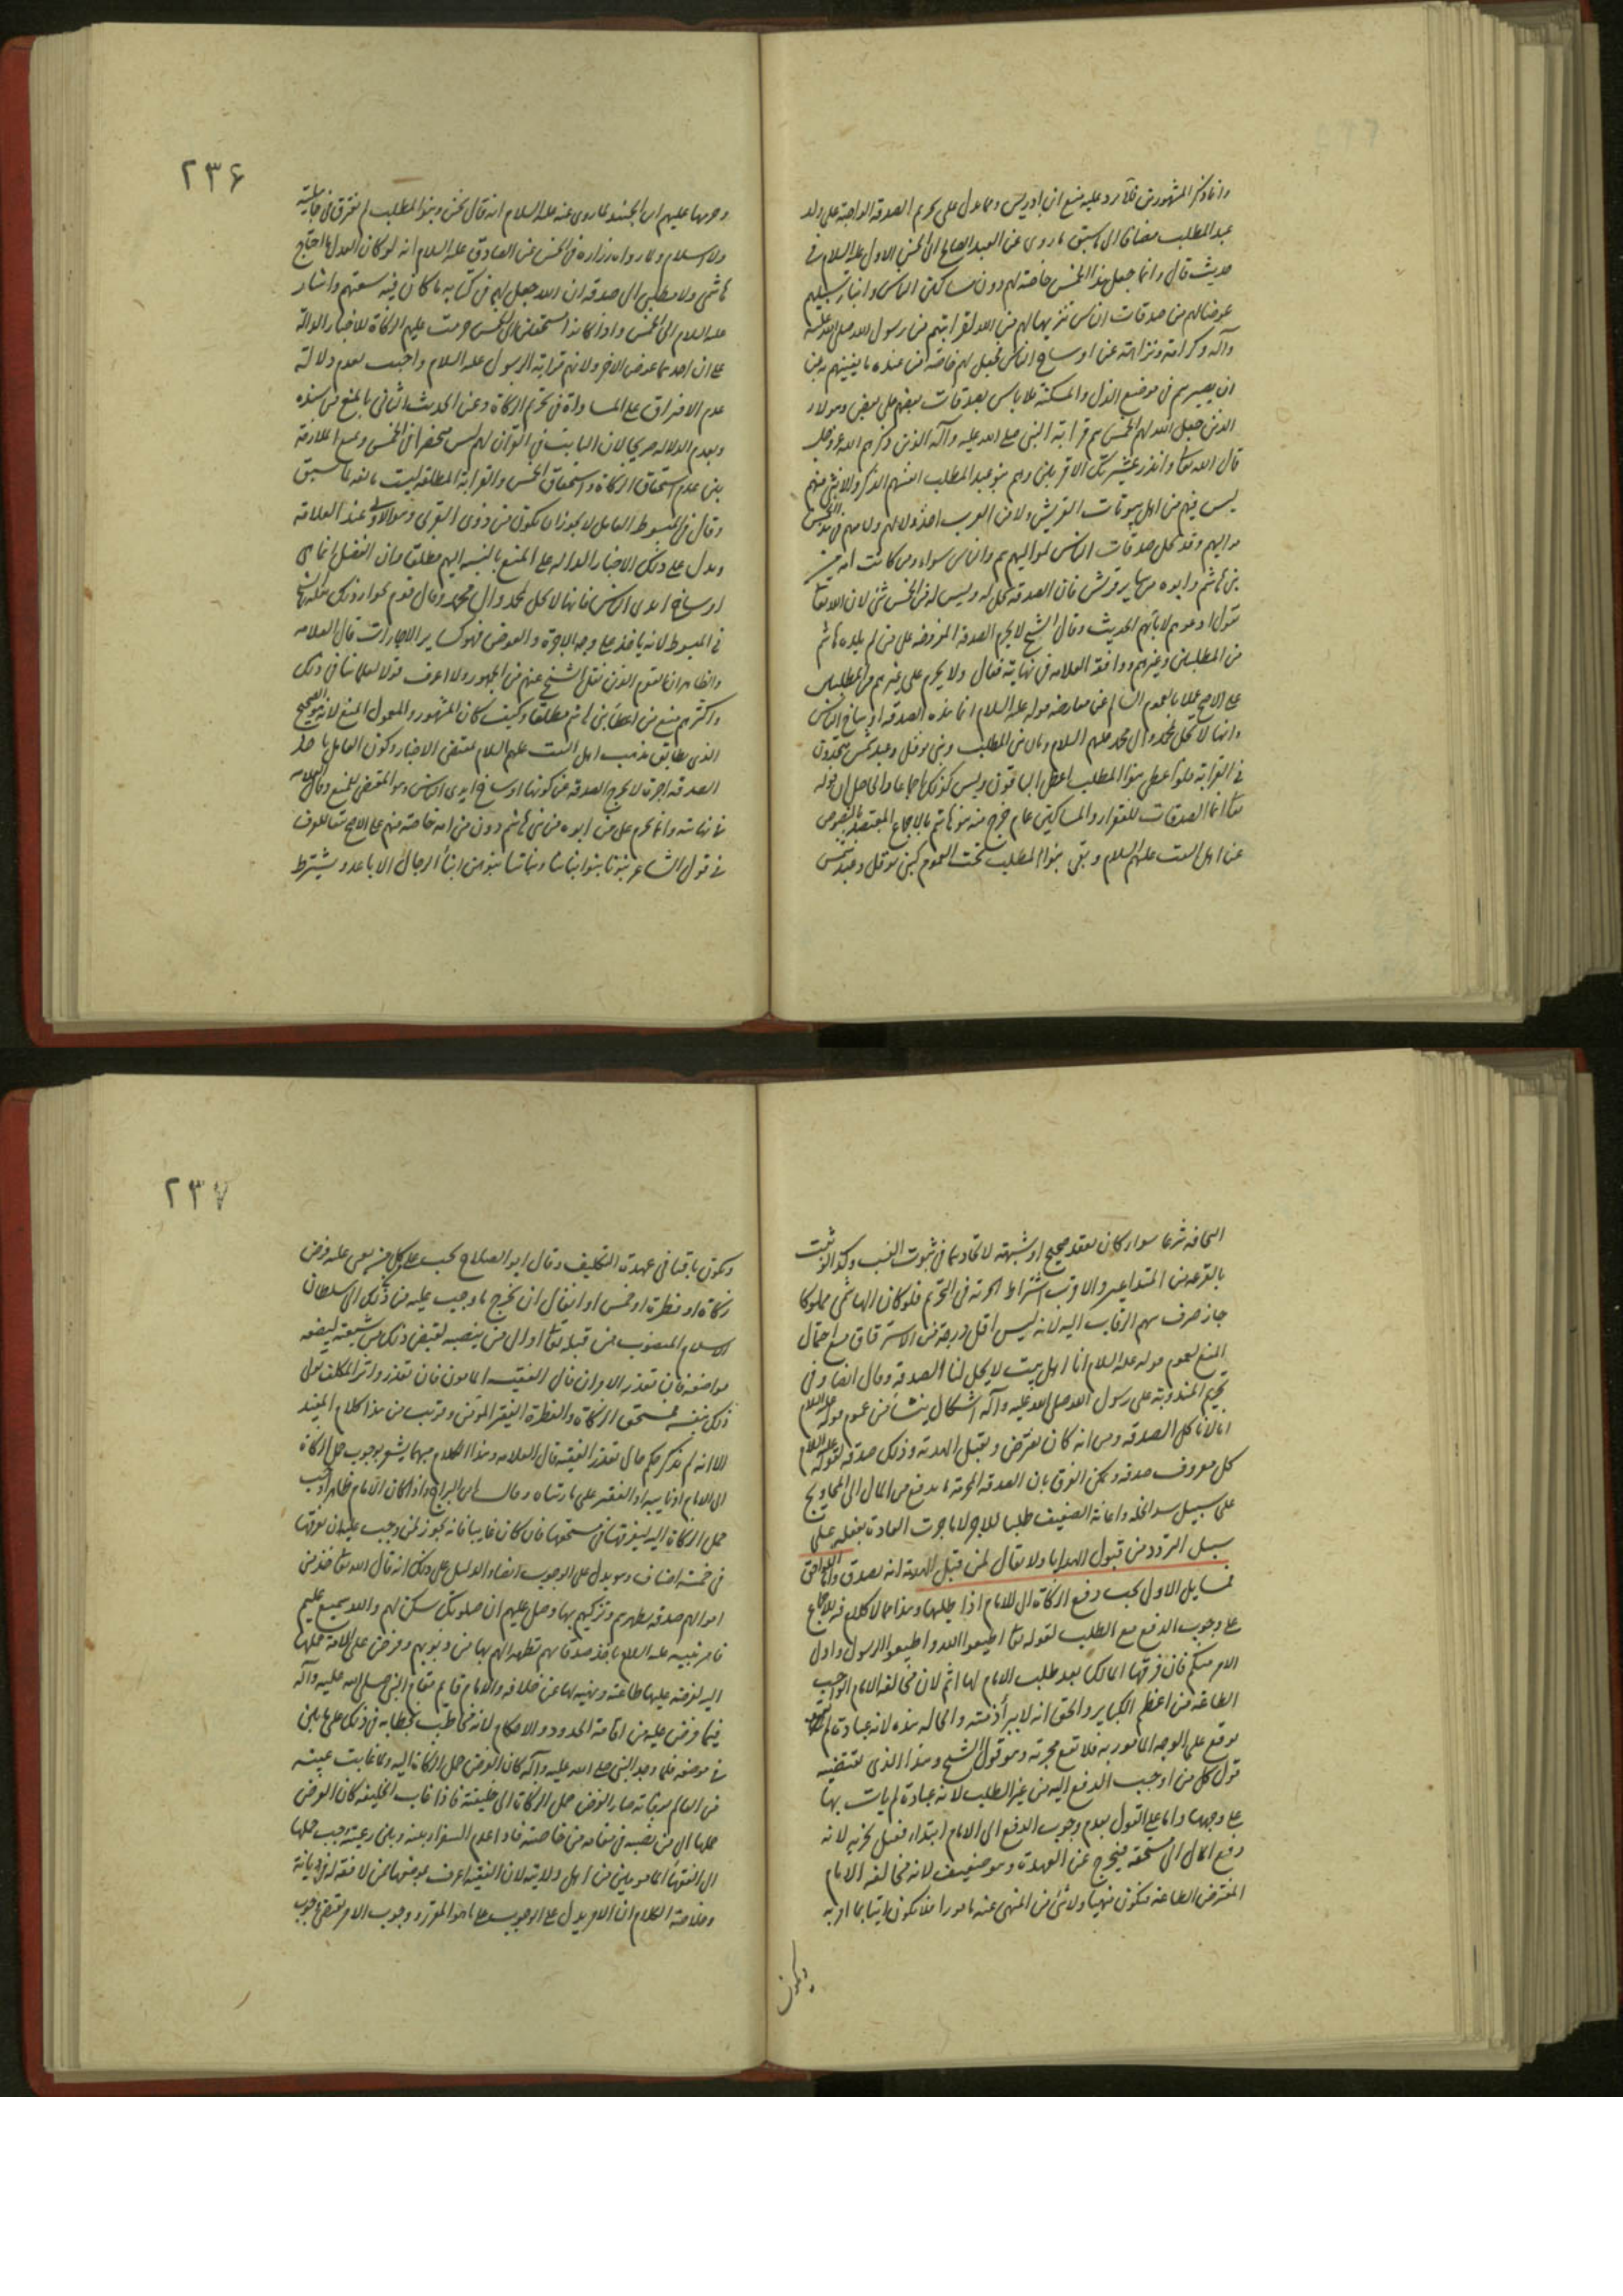 وانما ذكر المشهور من فلا رد عليه منع ابن ادريس ومما دل على تحريم الصدقة الواجبة على ولد
عبد المطلب مضافا الى ما سبق ما روى عن العبد الصالح ابى الحسن الاول عليه السلام فى
حديث قال وانما جعل هذا الخمس خاصة لهم دون مساكين الناس وابناء سبيلهم
عوضا لهم من صدقات الناس تنزيها لهم من الله لقرابتهم من رسول الله صلى الله عليه
وآله وكرامة ونزاهة عن اوساخ الناس فجعل لهم خاصة من عنده ما يغنيهم به عن
ان يصيرهم فى موضع الذل والمسكنة فلا باس بصدقات بعضهم على بعض وهولاء
الذين جعل الله لهم الخمس هم قرابة النبى صلى الله عليه وآله الذين ذكرهم الله عز وجل
قال الله تعا وانذر عشيرتك الاقربين وهم بنو عبد المطلب انفسهم الذكر والانثى منهم
ليس فيهم من اهل بيوتات القريش ولا من العرب احد ولا لهم ولا منهم فى هذا الخمس
مواليهم وقد تحل صدقات الناس لمواليهم هم والناس سواء ومن كانت امه من
بنى هاشم وابوه من ساير قريش فان الصدقة تحل له وليس له من الخمس شئ لان الله تعا
يقول ادعوهم لابائهم الحديث وقال الشيخ لا يحرم الصدقة المفروضة على من لم يلده هاشم
من المطلبيين وغيرهم ووافقه العلامه فى نهايته فقال ولا يحرم على غيرهم من المطلبيين
على الاصح عملا بالعموم السالم عن معارضة قوله عليه السلام انما هذه الصدقة اوساخ الناس
وانها لا تحل لمحمد وال محمد عليهم السلام ولان بنى المطلب وبنى نوفل وعبد شمس متحدون
فى القرابة فلو اعطى بنو المطلب اعطى الباقون وليس كذلك اجماعا والحاصل ان قوله
تعا انما الصدقات للفقراء والمساكين عام خرج منه بنو هاشم بالاجماع المعتضد بالنصوص
عن اهل البيت عليهم السلام وبقى بنو المطلب تحت العموم كبنى نوفل وعبد شمس
٢٣۶
وحرمها عليهم ابن الجنيد لما روى عنه عليه السلام انه قال نحن وبنو المطلب لم نفترق فى جاهلية
ولا اسلام ولما رواه زرارة فى الحسن عن الصادق عليه السلام انه لو كان العدل ما احتاج
هاشمى ولا مطلبى الى صدقة ان الله جعل لهم فى كتابه ما كان فيه سعتهم واشار
عليه السلام الى الخمس واذا كانوا مستحقين للخمس حرمت عليهم الزكاة للاخبار الدالة
على ان احدهما عوض الاخر ولانهم قرابة الرسول عليه السلام واجيب بعدم دلالة
عدم الافتراق على المساواة فى تحريم الزكاة وعن الحديث الثانى بالمنع من سنده
وبعدم الدلالة صريحا لان الثابت فى القرآن لهم ليس منحصرا فى الخمس ومنع الملازمة
بين عدم استحقاق الزكاة واستحقاق الخمس والقرابة المطلقة ليست مانعه لما سبق
وقال فى المبسوط العامل لا يجوز ان يكون من ذوى القربى وهو الاولى عند العلامة
ويدل على ذلك الاخبار الدالة على المنع بالنسبة اليهم مطلقا وان الفضل انما هى
اوساخ ايدى الناس فانها لا تحل لمحمد وال محمد وقال قوم بجواز ذلك حكاه الشيخ
فى المبسوط لانه ياخذ على وجه الاجرة والعوض فهو كساير الاجارات قال العلامه
والظاهر ان القوم الذين نقل الشيخ عنهم من الجمهور ولا اعرف قولا لعلمائنا فى ذلك
واكثرهم منع من اعطاء بنى هاشم مطلقا وكيف كان المشهور والمعول المنع لانه هو الصحيح
الذى يطابق مذهب اهل البيت عليهم السلام بمقتضى الاخبار وكون العامل ياخذ
الصدقة اجرة لا يخرج الصدقة عن كونها اوساخ ايدى الناس وهو المقتضى للمنع وقال العلامه
فى نهايته وانما تحرم على من ابوه من بنى هاشم دون من امه خاصة منهم على الاصح متعالفوف
فى قول الشاعر بنونا بنو ابنائنا وبناتنا بنوهن ابناء الرجال الاباعد ويشترط
الحاقه شرعا سواء كان بعقد صحيح او شبهة لاتحادهما فى ثبوت النسب وكذا لو ثبت
بالقرعة من المتداعيين والاقرب اشتراط الحرية فى التحريم فلو كان الهاشمى مملوكا
جاز صرف سهم الرقاب اليه لانه ليس اقل درجة من الاسترقاق مع احتمال
المنع لعموم قوله عليه السلام انا اهل بيت لا يحل لنا الصدقة وقال ايضا وفى
تحريم المندوبة على رسول الله صلى الله عليه وآله اشكال ينشأ من عموم قوله عليه السلام
انا لا ناكل الصدقة ومن انه كان يقترض ويقبل الهدية وذلك صدقة لقوله عليه السلام
كل معروف صدقة ويمكن الفرق بان الصدقة المحرمة ما يدفع من المال الى المحاويج
على سبيل سد الخلة واعانة الضعيف طلبا للاجر لا ما جرت العادة بفعله على
سبيل التودد من قبول الهدايا ولا يقال لمن قبل الهدية انه تصدق واما اللواحق
فمسايل الاول يجب دفع الزكاة الى الامام اذا طلبها وهذا مما لا كلام فيه للاجماع
على وجوب الدفع مع الطلب لقوله تعا اطيعوا الله واطيعوا الرسول واولى
الامر منكم فان فرقها المالك بعد طلب الامام لها اثم لان مخالفه الامام الواجب
الطاعة من اعظم الكباير والحق انه لا يبرأ ذمته والحالة هذه لانه عبادة لم
توقع على الوجه المامور به فلا تقع مجزية وهو قول الشيخ وهذا الذى يقتضيه
قول كل من اوجب الدفع اليه من غير الطلب لانه عبادة لم يات بها
على وجهها واما على القول بعدم وجوب الدفع الى الامام ابتداء فقيل يجزيه لانه
دفع المال الى مستحقه فيخرج عن العهدة وهو ضعيف لانه مخالفة الامام
المفترض الطاعة فيكون منهيا ولا شئ من المنهى عنه مامورا فلا يكون اتيا بما امر به
ويكون
٢٣٧
ويكون باقيا فى عهدة التكليف وقال ابو الصلاح يجب على كل من تعين عليه فرض
زكاة او فطرة او خمس او انفال ان يخرج ما وجب عليه من ذلك الى سلطان
الاسلام المنصوب من قبله تعا او الى من ينصبه لقبض ذلك من شيعته ليضعه
مواضعه فان تعذر الامران فالى الفقيه المامون فان تعذر واثر المكلف تولى
ذلك بنفسه فمستحق الزكاة والفطرة الفقير المؤمن وقريب من هذا كلام المفيد
الا انه لم يذكر حكم حال تعذر الفقيه قال العلامه وهذا الكلام منهما يشعر بوجوب حمل الزكاة
الى الامام او نايبه او الفقيه على ما رتباه وقال ابن البراج واذا كان الامام ظاهرا وجب
حمل الزكاة اليه ليفرقها فى مستحقها فان كان غايبا فانه يجوز لمن وجب عليه ان يفرقها
فى خمسة اصناف وهو يدل على الوجوب ايضا والدليل على ذلك انه قال الله تعا خذ من
اموالهم صدقة تطهرهم وتزكيهم بها وصل عليهم ان صلوتك سكن لهم والله سميع عليم
فامر نبيه عليه السلام باخذ صدقاتهم تطهيرا لهم بها من ذنوبهم وفرض على الامة حملها
اليه لفرضه عليها طاعته ونهيه لها عن خلافه والامام قايم مقام النبى صلى الله عليه وآله
فيما فرض عليه من اقامة الحدود والاحكام لانه مخاطب بخطابه فى ذلك على ما بين
فى موضعه فلما وجد النبى صلى الله عليه وآله كان الفرض حمل الزكاة اليه ولما غابت عينه
من العالم بوفاته صار الفرض حمل الزكاة الى خليفته فاذا غاب الخليفة كان الفرض
حملها الى من نصبه فى مقامه من خاصته فاذا عدم السفراء بينه وبين رعيته وجب حملها
الى الفقهاء المامونين من اهل ولايته لان الفقيه اعرف بموضعها ممن لا فقه له فى ديانته
وخلاصة الكلام ان الامر يدل على الوجوب على ما هو المقرر ووجوب الامر يقتضى وجوب